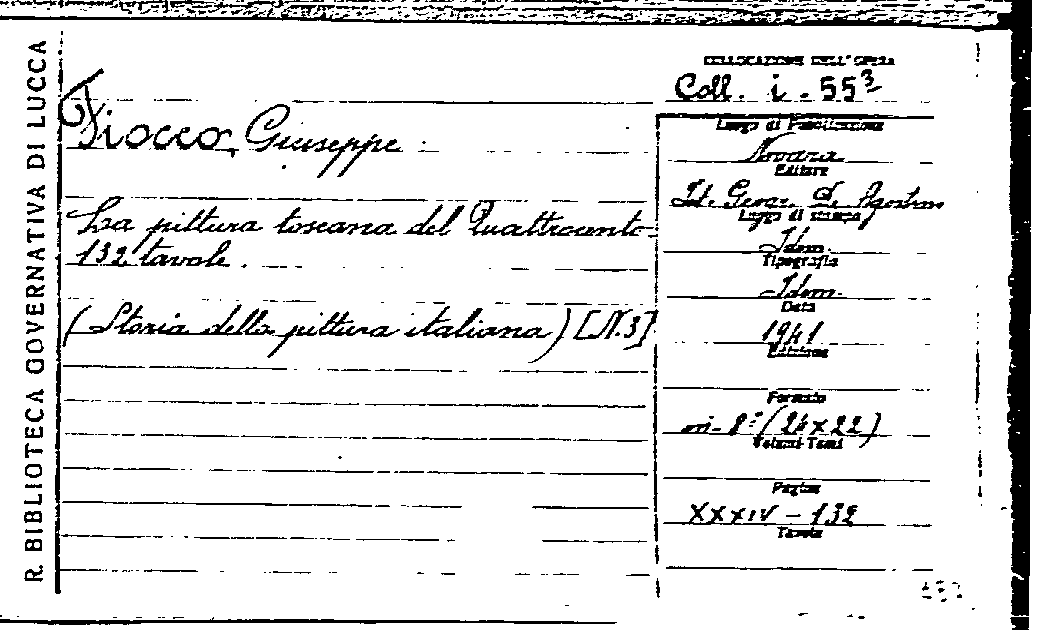 R. BIBLIOTECA GOVERNATIVA DI LUCCA
COLLOCAZIONE DELL'OPERA
Coll. i. 55³
Fiocco, Giuseppe
La pittura toscana del Quattrocento
132 tavole.
(Storia della pittura italiana) [N.3]
Luogo di Pubblicazione
Novara
Editore
Ist. Geogr. De Agostini
Luogo di stampa
Idem.
Tipografia
Idem.
Data
1941
Edizione
Formato
in-8° (24x22)
Volumi-Tomi
Pagine
XXXIV-132
Tavole